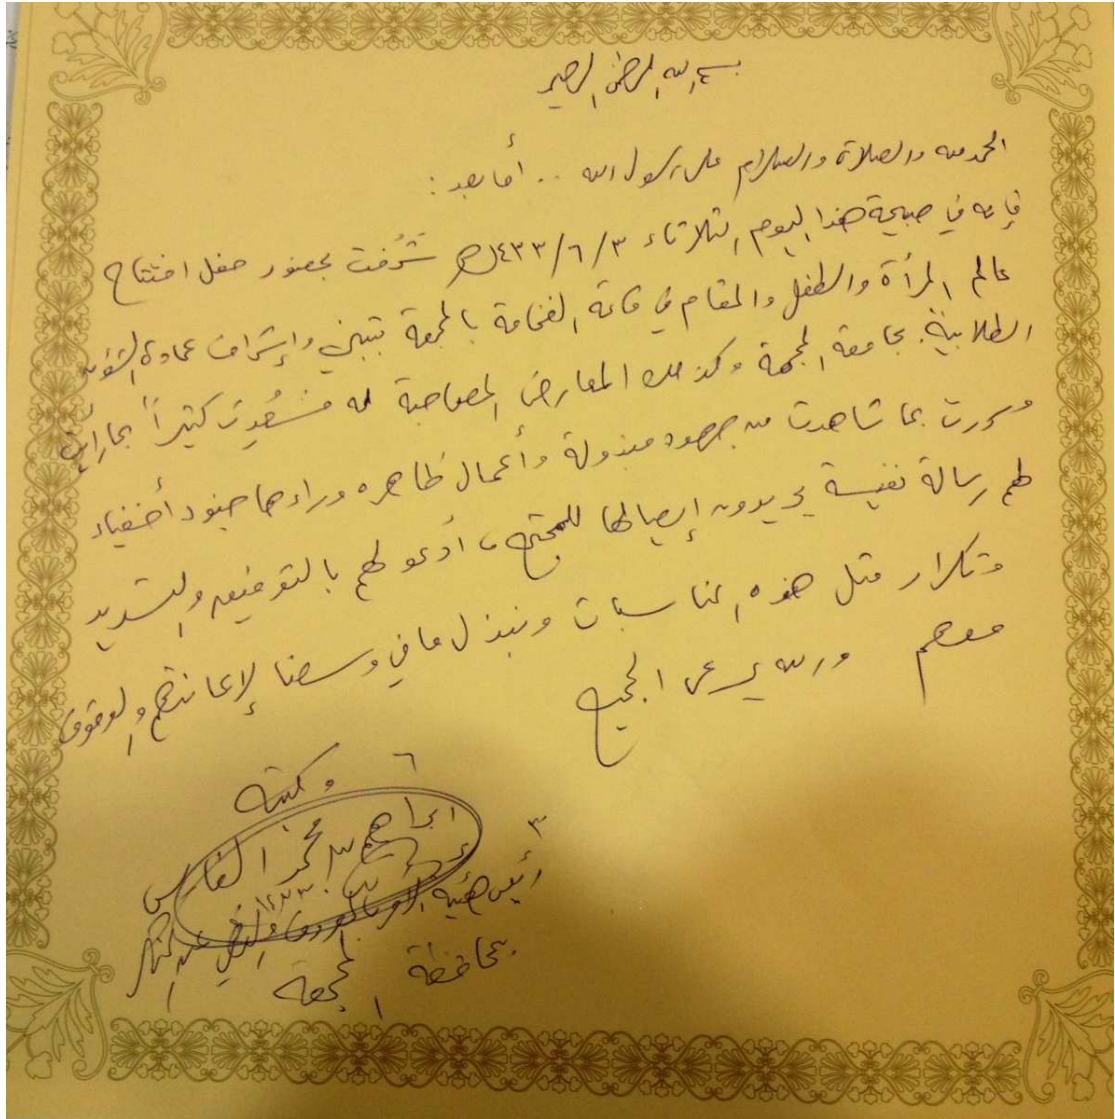 بسم الله الرحمن الرحيم
الحمد لله والصلاة والسلام على رسول الله .. أما بعد :
فإنه في صبيحة هذا اليوم الثلاثاء ١٤٣٣/٦/٣هـ تشرفت بحضور حفل افتتاح
عالم المرأة والطفل والمقام في قاعة الفخامة بالمجمعة بتبني وإشراف عمادة الشؤون
الطلابية بجامعة المجمعة وكذلك المعارض المصاحبة له فسعدت كثيراً بما رأيت
وسررت بما شاهدت من جهود مبذولة وأعمال ظاهره وراءها جنود أخفياء
لهم رسالة نفيسة يريدون إيصالها للمجتمع، أدعو لهم بالتوفيق والتسديد
وتكرار مثل هذه المناسبات ونبذل ما في وسعنا لإعانتهم والوقوف
معهم والله يرعى الجميع
وكتبه
ابراهيم بن محمد الفارس
رئيس هيئة الأمر بالمعروف والنهي عن المنكر
بمحافظة المجمعة